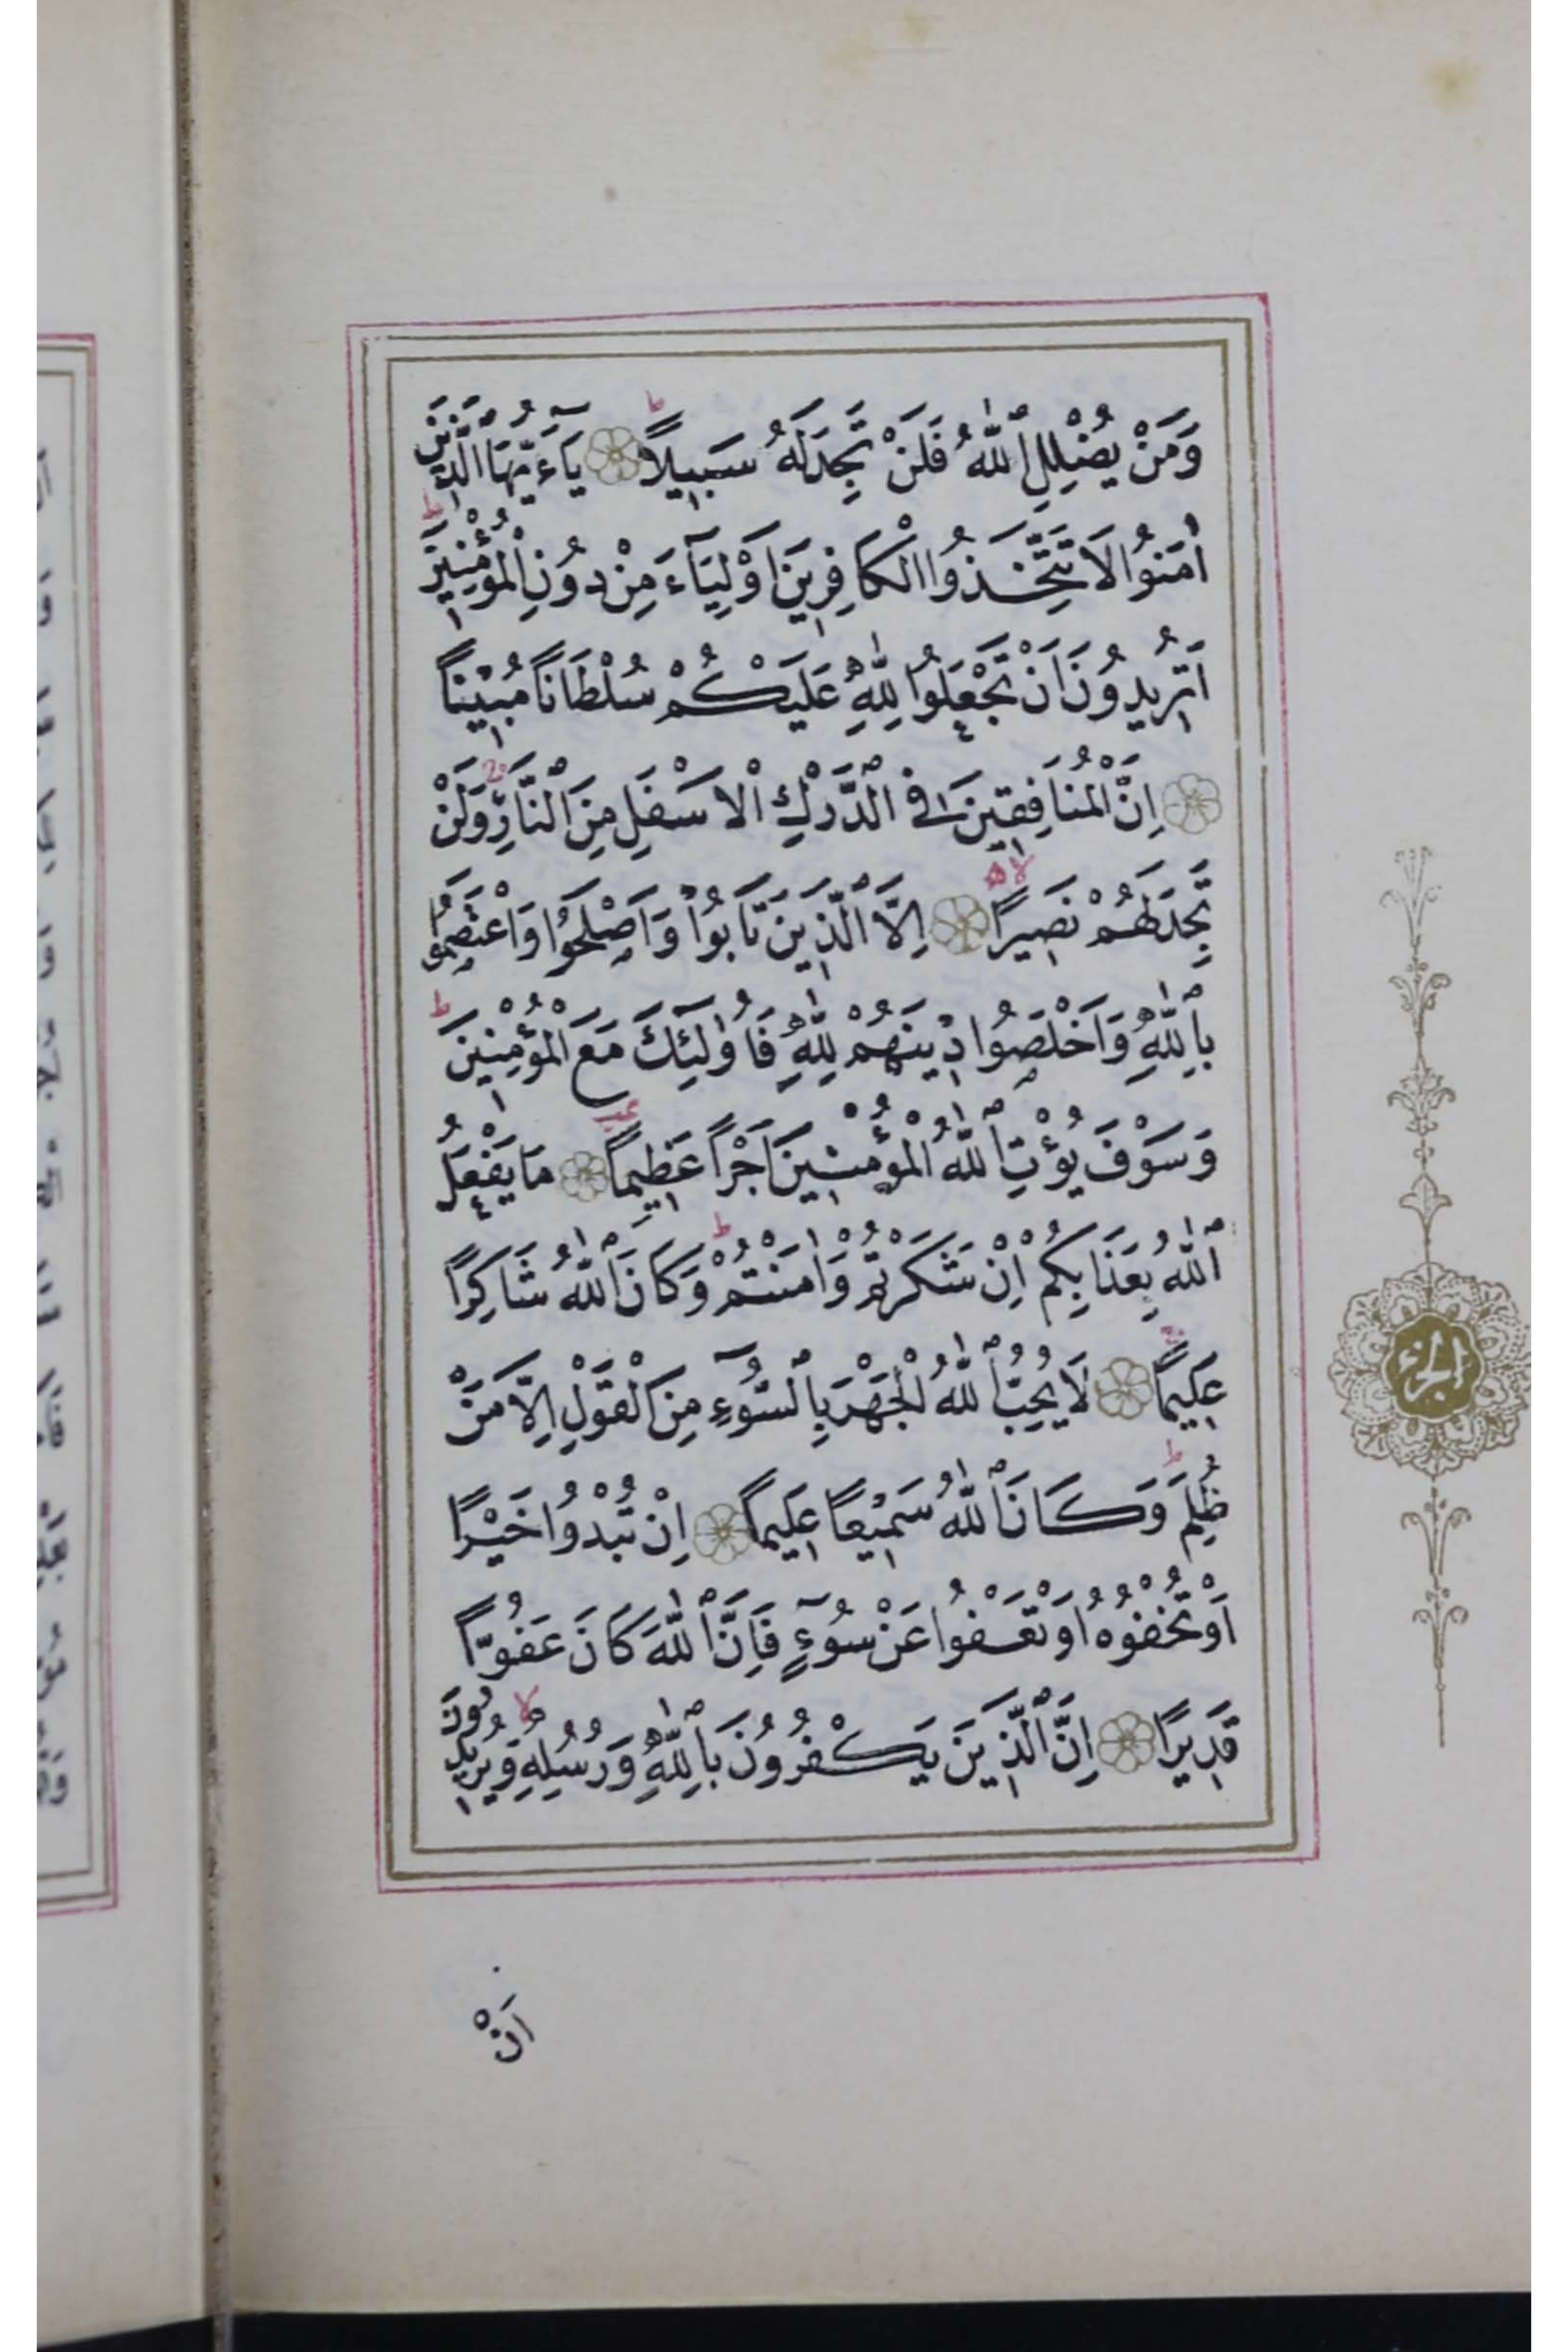 وَمَنْ يُضْلِلِ ٱللّٰهُ فَلَنْ تَجِدَ لَهُ سَبِيلًا ط يَآءَيُّهَا الَّذِينَ
اٰمَنُوا لَا تَتَّخِذُوا الْكَافِرِينَ اَوْلِيَآءَ مِنْ دُونِ الْمُؤْمِنِينَ ط
اَتُرِيدُونَ اَنْ تَجْعَلُوا لِلّٰهِ عَلَيْكُمْ سُلْطَانًا مُبِيْنًا
اِنَّ الْمُنَافِقِينَ فِى ٱلدَّرْكِ الْاَسْفَلِ مِنَ ٱلنَّارِ وَلَنْ
تَجِدَ لَهُمْ نَصِيرًا لا اِلَّا ٱلَّذِينَ تَابُوا وَاَصْلَحُوا وَاعْتَصَمُوا
بِٱللّٰهِ وَاَخْلَصُوا دِينَهُمْ لِلّٰهِ فَاُولٰٓئِكَ مَعَ الْمُؤْمِنِينَ ط
وَسَوْفَ يُؤْتِ ٱللّٰهُ الْمُؤْمِنِينَ اَجْرًا عَظِيمًا مَا يَفْعَلُ
ٱللّٰهُ بِعَذَابِكُمْ اِنْ شَكَرْتُمْ وَاٰمَنْتُمْ ط وَكَانَ ٱللّٰهُ شَاكِرًا
عَلِيمًا لَا يُحِبُّ ٱللّٰهُ الْجَهْرَ بِٱلسُّوٓءِ مِنَ الْقَوْلِ اِلَّا مَنْ
ظُلِمَ ط وَكَانَ ٱللّٰهُ سَمِيْعًا عَلِيمًا اِنْ تُبْدُوا خَيْرًا
اَوْ تُخْفُوْهُ اَوْ تَعْفُوا عَنْ سُوٓءٍ فَاِنَّ ٱللّٰهَ كَانَ عَفُوًّا
قَدِيرًا اِنَّ ٱلَّذِينَ يَكْفُرُونَ بِٱللّٰهِ وَرُسُلِهِ لا وَيُرِيدُونَ
اَنْ
الجزء